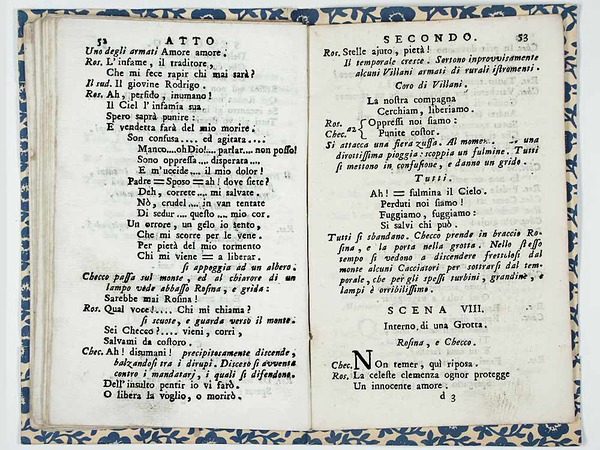 52 ATTO
Uno degli armati Amore amore.
Ros. L' infame, il traditore,
Che mi fece rapir chi mai sarà?
Il sud. Il giovine Rodrigo.
Ros. Ah, perfido, inumano!
Il Ciel l' infamia sua
Spero saprà punire:
E vendetta farà del mio morire.
Son confusa.... ed agitata....
Manco....oh Dio!.... parlar.... non posso!
Sono oppressa.... disperata....
E m' uccide.... il mio dolor!
Padre = Sposo = ah! dove siete?
Deh, correte.... mi salvate.
Nò, crudel.... in van tentate
Di sedur.... questo .... mio cor.
Un orrore, un gelo io sento,
Che mi scorre per le vene.
Per pietà del mio tormento
Chi mi viene = a liberar.
si appoggia ad un albero.
Checco passa sul monte, ed al chiarore di un
lampo vede abbasso Rosina, e grida:
Sarebbe mai Rosina!
Ros. Qual voce!.... Chi mi chiama?
si scuote, e guarda verso il monte.
Sei Checco?.... vieni, corri,
Salvami da costoro.
Chec. Ah! disumani! precipitosamente discende,
balzando fra i dirupi. Disceso si avventa
contro i mandatarj, i quali si difendono.
Dell' insulto pentir io vi farò.
O libera la voglio, o morirò.
SECONDO. 53
Ros. Stelle ajuto, pietà!
Il temporale cresce. Sortono inprovvisamente
alcuni Villani armati di rurali istromenti.
Coro di Villani.
La nostra compagna
Cerchiam, liberiamo.
Ros. Oppressi noi siamo:
Chec. a2 Punite costor.
Si attacca una fiera zuffa. Al una
dirottissima pioggia: scoppia un fulmine. Tutti
si mettono in confusione, e danno un grido.
Tutti.
Ah! = fulmina il Cielo.
Perduti noi siamo!
Fuggiamo, fuggiamo:
Si salvi chi può.
Tutti si sbandano. Checco prende in braccio Ro-
sina, e la porta nella grotta. Nello stesso
tempo si vedono a discendere frettolosi dal
monte alcuni Cacciatori per sottrarsi dal tem-
porale, che per gli spessi turbini, grandine, e
lampi è orribilissimo.
SCENA VIII.
Interno di una Grotta.
Rosina, e Checco.
Chec. Non temer, quì riposa.
Ros. La celeste clemenza ognor protegge
Un innocente amore.
d 3